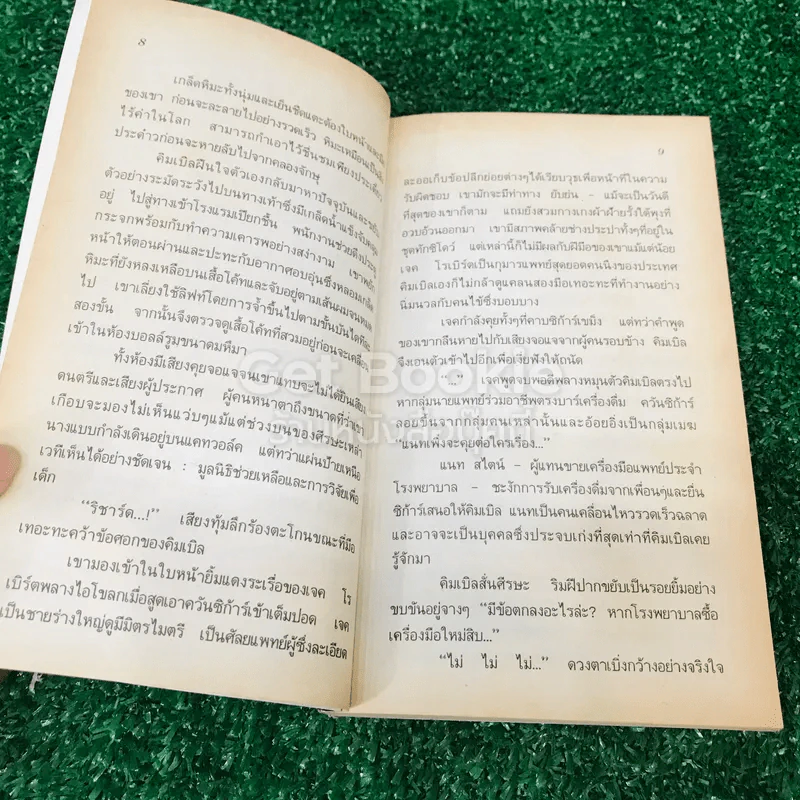 8
เกล็ดหิมะทั้งนุ่มและเย็นชืดแตะต้องใบหน้า
ของเขา ก่อนจะละลายไปอย่างรวดเร็ว หิมะเหมือนเป็น
ไร้ค่าในโลก สามารถกำเอาไว้ชื่นชมเพียงประเดี๋ยว
ประด๋าวก่อนจะหายลับไปจากคลองจักษุ
คิมเบิลฝืนใจตัวเองกลับมาหาปัจจุบันและ
ตัวอย่างระมัดระวังไปบนทางเท้าซึ่งมีเกล็ดน้ำแข็งจับ
อยู่ ไปสู่ทางเข้าโรงแรมเปียกชื้น พนักงานช่วยดึงประตู
กระจกพร้อมกับทำความเคารพอย่างสง่างาม เขาพยัก
หน้าให้ตอนผ่านและปะทะกับอากาศอบอุ่นซึ่งหลอมเกล็ด
หิมะที่ยังหลงเหลือบนเสื้อโค้ทและจับอยู่ตามเส้นผมจนหมด
ไป เขาเลี่ยงใช้ลิฟท์โดยการจ้ำขึ้นไปตามขั้นบันไดทีละ
สองขั้น จากนั้นจึงตรวจดูเสื้อโค้ทที่สวมอยู่ก่อนจะเคลื่อน
เข้าในห้องบอลล์รูมขนาดมหึมา
ทั้งห้องมีเสียงคุยจอแจจนเขาแทบจะไม่ได้ยินเสียง
ดนตรีและเสียงผู้ประกาศ ผู้คนหนาตาถึงขนาดที่ว่าเขา
เกือบจะมองไม่เห็นแว่บๆแม้แต่ช่วงบนของศีรษะเหล่า
นางแบบกำลังเดินอยู่บนแคทวอล์ค แต่ทว่าแผ่นป้ายเหนือ
เวทีเห็นได้อย่างชัดเจน : มูลนิธิช่วยเหลือและการวิจัยเพื่อ
เด็ก
“ริชาร์ด...!” เสียงทุ้มลึกร้องตะโกนขณะที่มือ
เทอะทะคว้าข้อศอกของคิมเบิล
เขามองเข้าในใบหน้ายิ้มแดงระเรื่อของเจค โร
เบิร์ตพลางไอโขลกเมื่อสูดเอาควันซิก้าร์เข้าเต็มปอด เจค
เป็นชายร่างใหญ่ดูมีมิตรไมตรี เป็นศัลยแพทย์ผู้ซึ่งละเอียด
9
ละออเก็บข้อปลีกย่อยต่างๆได้เรียบวุธเพื่อหน้าที่ในความ
รับผิดชอบ เขามักจะมีท่าทาง ยับย่น – แม้จะเป็นวันดี
ที่สุดของเขาก็ตาม แถมยังสวมกางเกงผ้าฝ้ายรั้งใต้พุงที่
อวบอ้วนออกมา เขามีสภาพคล้ายช่างประปาทั้งๆที่อยู่ใน
ชุดทักซิโดว์ แต่เหล่านี้ก็ไม่มีผลกับฝีมือของเขาแม้แต่น้อย
เจค โรเบิร์ตเป็นกุมารแพทย์สุดยอดคนนึงของประเทศ
คิมเบิลเองก็ไม่กล้าดูแคลนสองมือเทอะทะที่ทำงานอย่าง
นิ่มนวลกับคนไข้ซึ่งบอบบาง
เจคกำลังคุยทั้งๆที่คาบซิก้าร์เขม็ง แต่ทว่าคำพูด
ของเขากลืนหายไปกับเสียงจอแจจากผู้คนรอบข้าง คิมเบิล
จึงเอนตัวเข้าไปอีกเพื่อเงี่ยฟังให้ถนัด
“...” เจคพูดจบพอดีพลางหมุนตัวคิมเบิลตรงไป
หากลุ่มนายแพทย์ร่วมอาชีพตรงบาร์เครื่องดื่ม ควันซิก้าร์
ลอยขึ้นจากกลุ่มคนเหล่านั้นและอ้อยอิ่งเป็นกลุ่มเมฆ
“แนทเพิ่งจะคุยต่อใครเรื่อง...”
แนท สไตน์ – ผู้แทนขายเครื่องมือแพทย์ประจำ
โรงพยาบาล – ชะงักการรับเครื่องดื่มจากเพื่อนๆและยื่น
ซิก้าร์เสนอให้คิมเบิล แนทเป็นคนเคลื่อนไหวรวดเร็วฉลาด
และอาจจะเป็นบุคคลซึ่งประจบเก่งที่สุดเท่าที่คิมเบิลเคย
รู้จักมา
คิมเบิลสั่นศีรษะ ริมฝีปากขยับเป็นรอยยิ้มอย่าง
ขบขันอยู่จางๆ “มีข้อตกลงอะไรล่ะ? หากโรงพยาบาลซื้อ
เครื่องมือใหม่สิบ...”
“ไม่ ไม่ ไม่...” ดวงตาเบิ่งกว้างอย่างจริงใจ
Get Bookie
ร้านหนังสือบุ๊คกี้